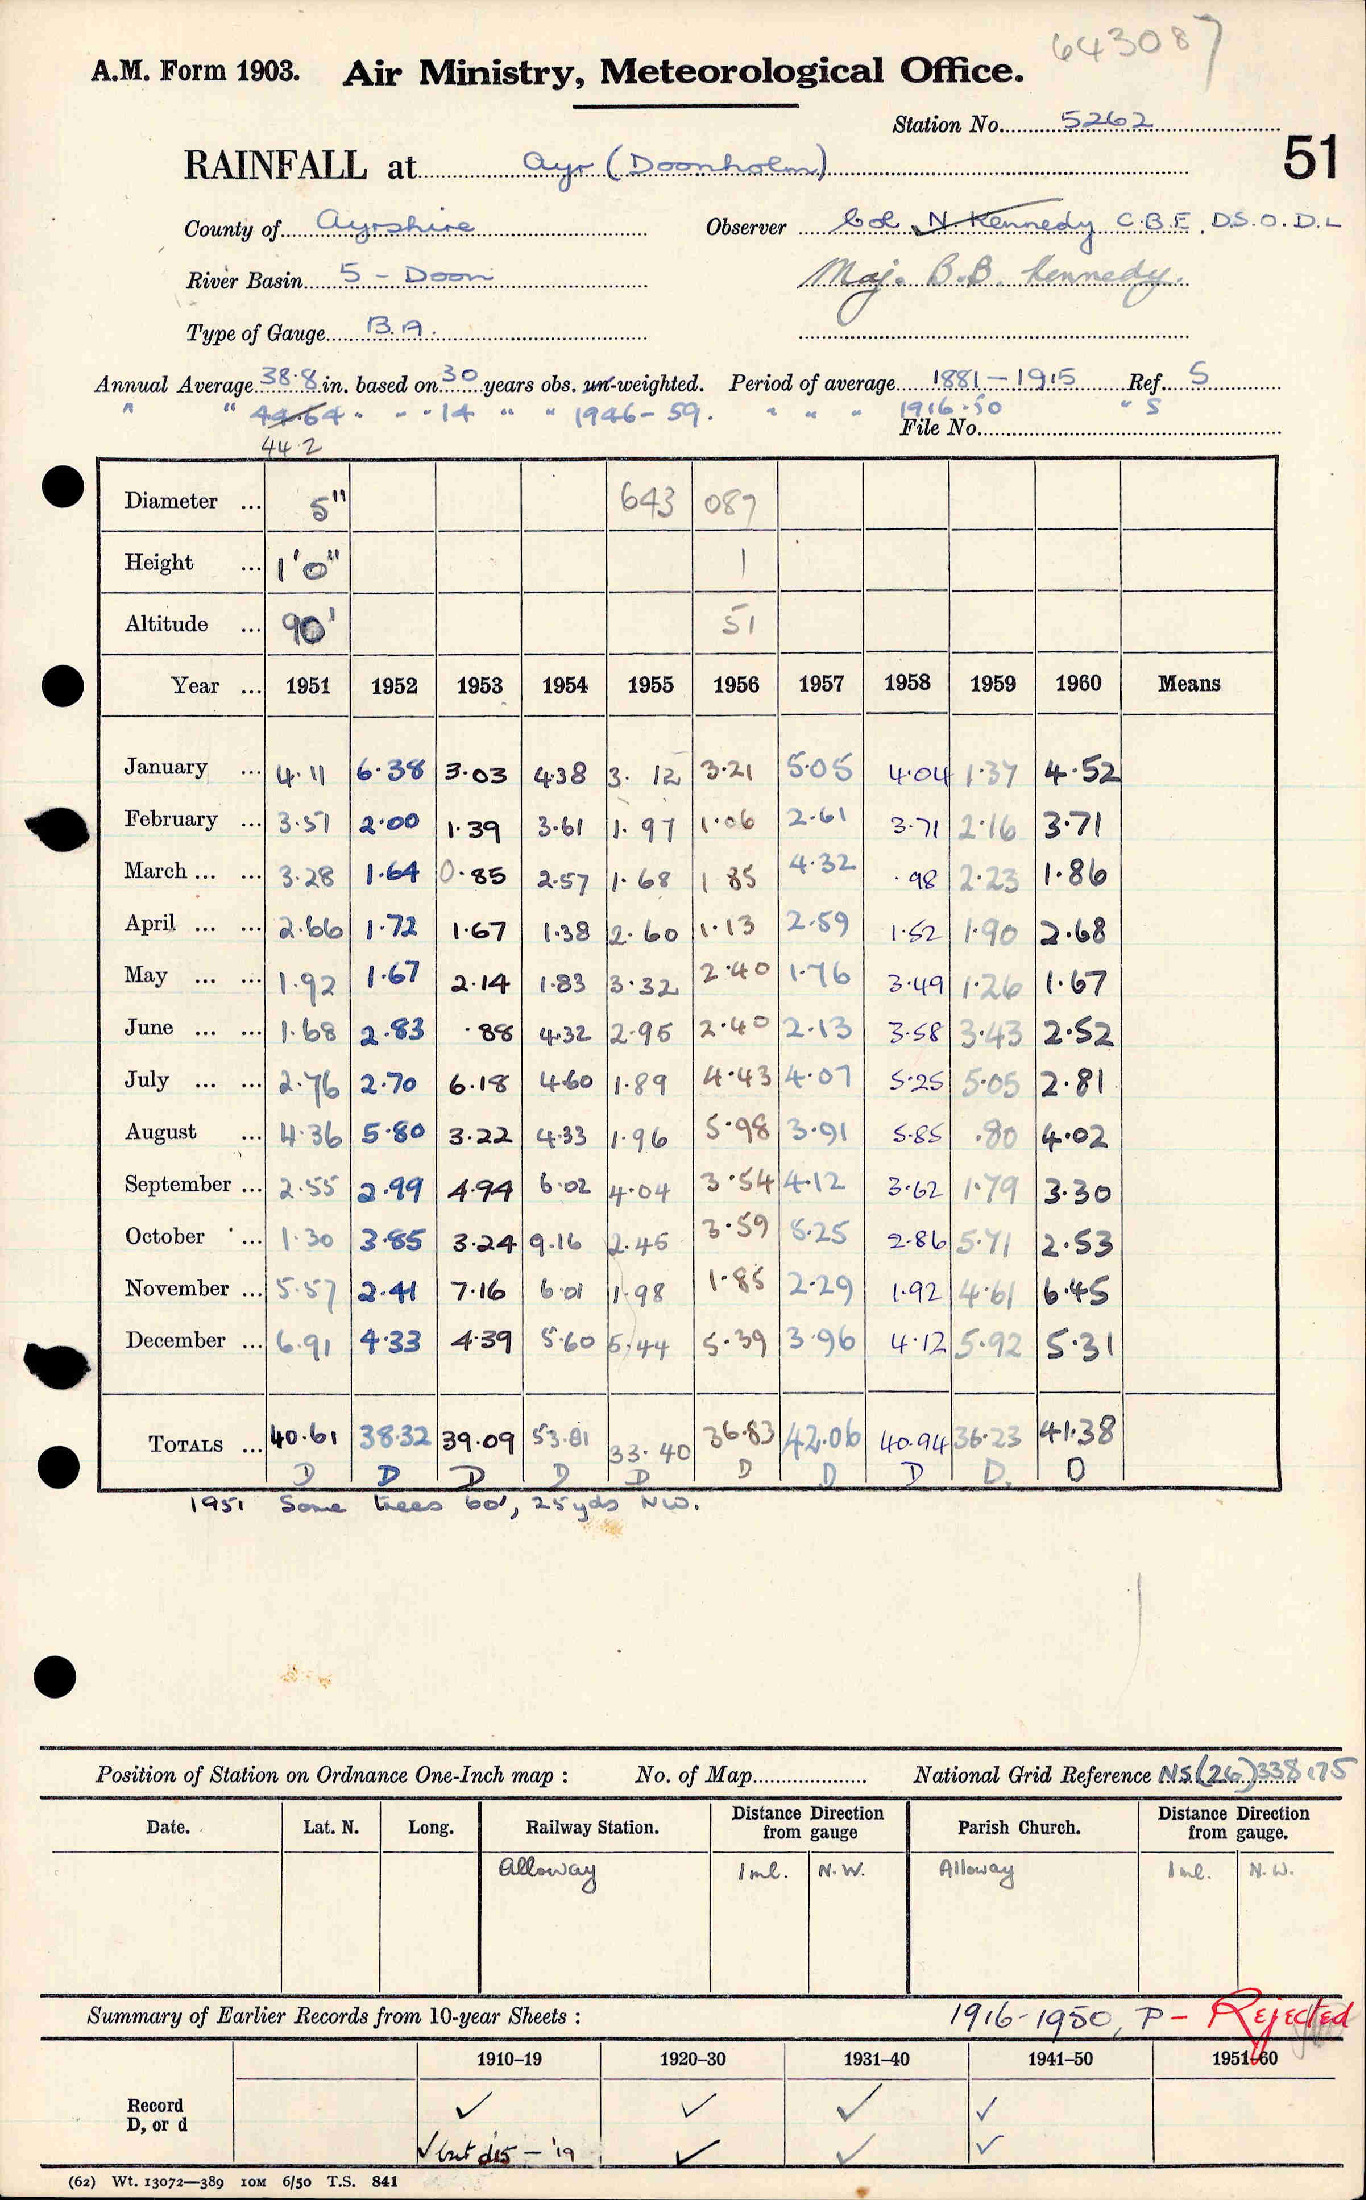 643087
A.M. Form 1903. Air Ministry, Meteorological Office.
Station No. 5262
51
RAINFALL at Ayr (Doonholm)
County of Ayrshire Observer Col N Kennedy C.B.E, D.S.O. D.L
River Basin 5 - Doon Maj. B.B. Kennedy.
Type of Gauge B.A.
Annual Average 38.8 in. based on 30 years obs. un-weighted. Period of average 1881-1915 Ref. S
" " 44.64 " " " 14 " " 1946-59. " " " 1916-50 " S
44.2 File No.
Diameter ... 5" 643 087
Height ... 1'0" 1
Altitude ... 90' 51
Year ... 1951 1952 1953 1954 1955 1956 1957 1958 1959 1960 Means
January ... 4.11 6.38 3.03 4.38 3.12 3.21 5.05 4.04 1.37 4.52
February ... 3.51 2.00 1.39 3.61 1.97 1.06 2.61 3.71 2.16 3.71
March ... ... 3.28 1.64 0.85 2.57 1.68 1 85 4.32 .98 2.23 1.86
April ... ... 2.66 1.72 1.67 1.38 2.60 1.13 2.59 1.52 1.90 2.68
May ... ... 1.92 1.67 2.14 1.83 3.32 2.40 1.76 3.49 1.26 1.67
June ... ... 1.68 2.83 .88 4.32 2.95 2.40 2.13 3.58 3.43 2.52
July ... ... 2.76 2.70 6.18 4.60 1.89 4.43 4.07 5.25 5.05 2.81
August ... 4.36 5.80 3.22 4.33 1.96 5.98 3.91 5.85 .80 4.02
September ... 2.55 2.99 4.94 6.02 4.04 3.54 4.12 3.62 1.79 3.30
October ... 1.30 3.85 3.24 9.16 2.45 3.59 5.25 2.86 5.71 2.53
November ... 5.57 2.41 7.16 6.01 1.98 1.85 2.29 1.92 4.61 6.45
December ... 6.91 4.33 4.39 5.60 5.44 5.39 3.96 4.12 5.92 5.31
TOTALS ... 40.61 38.32 39.09 53.81 33.40 36.83 42.06 40.94 36.23 41.38
D D D D D D D D D. D
1951 Some trees 60', 25yds NW.
Position of Station on Ordnance One-Inch map : No. of Map National Grid Reference NS(26)338175
Date. Lat. N. Long. Railway Station. Distance Direction from gauge Parish Church. Distance Direction from gauge.
Alloway 1 ml. N.W. Alloway 1 ml. N.W.
Summary of Earlier Records from 10-year Sheets : 1916-1950, P - Rejected
1910–19 1920–30 1931–40 1941–50 1951–60
Record ✓ ✓ ✓ ✓
D, or d
✓ but d15 - '19 ✓ ✓ ✓
(62) Wt. 13072—389 10M 6/50 T.S. 841